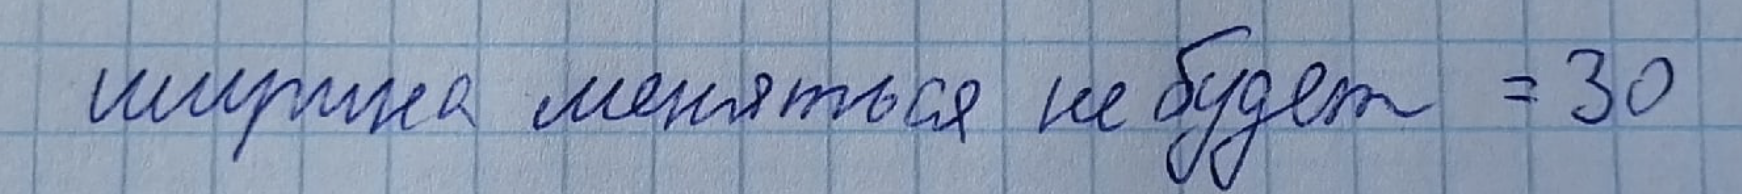 ширина меняться не будет = 30